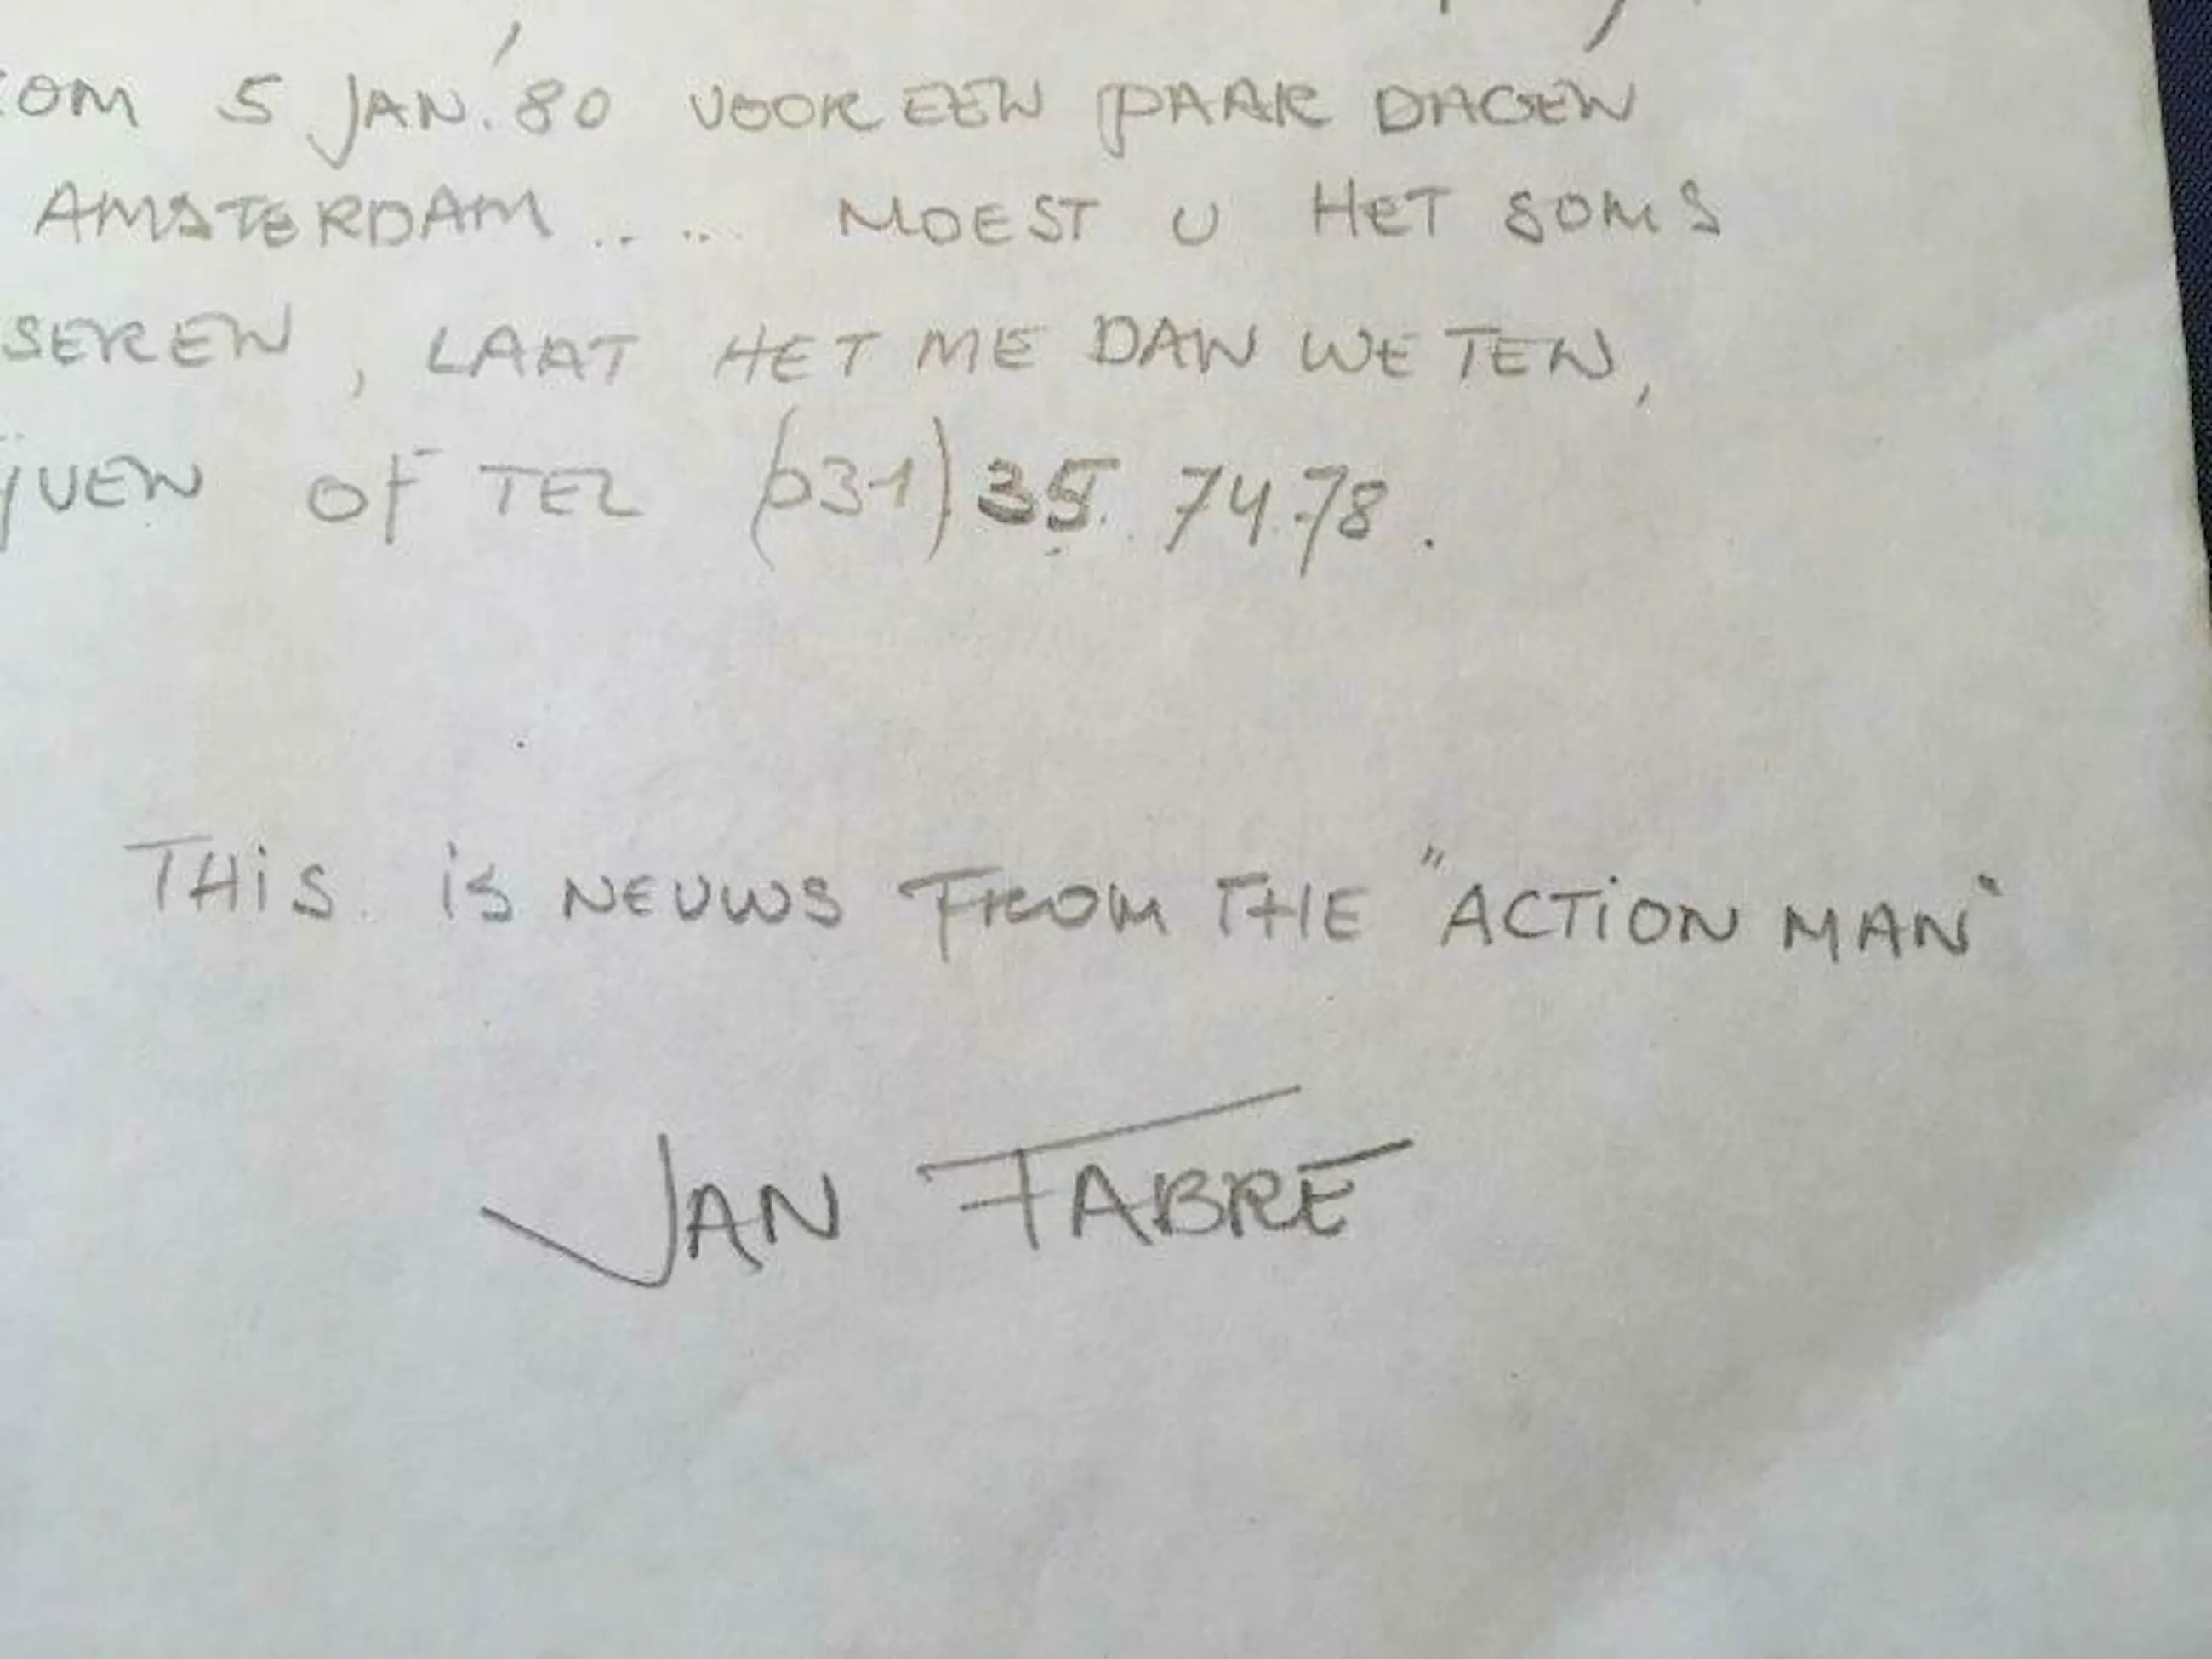 KOM 5 JAN. '80 VOOR EEN PAAR DAGEN
AMSTERDAM..... MOEST U HET SOMS
SEREN, LAAT HET ME DAN WETEN,
IJVEN OF TEL (031) 35.74.78.
THIS IS NEUWS FROM THE "ACTION MAN"
JAN FABRE